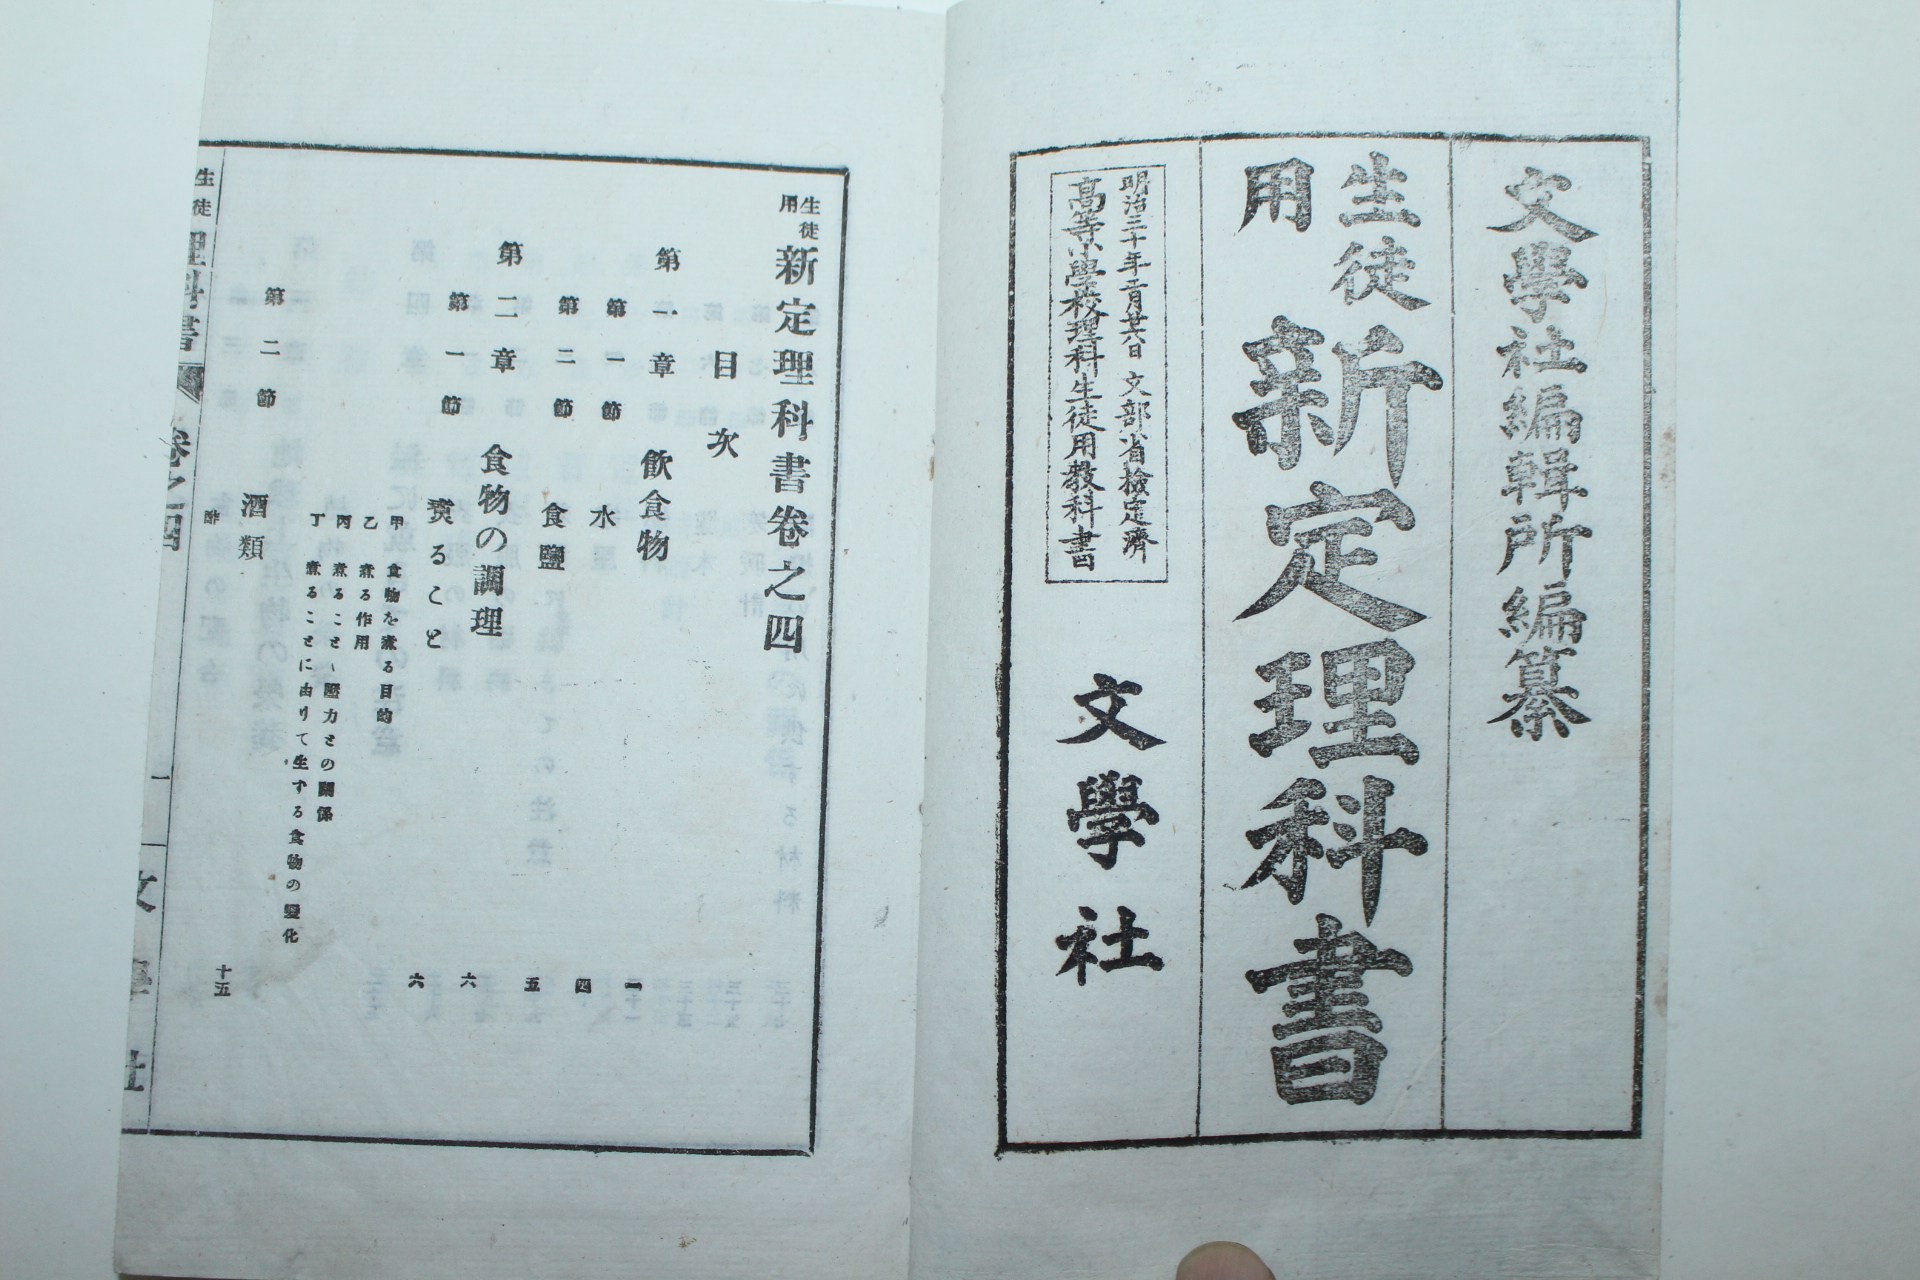 文學社編輯所編纂
生徒用 新定理科書
明治三十年二月廿六日 文部省檢定濟
高等小學校理科生徒用敎科書
文學社
生徒用 新定理科書卷之四
目次
第一章 飲食物 一
第一節 水 四
第二節 食鹽 五
第二章 食物の調理 六
第一節 煑ること 六
甲 食物を煮る目的
乙 煮る作用
丙 煮ることゝ壓力との關係
丁 煮ることに由りて生ずる食物の變化
第二節 酒類
酢 十五
生徒 理科書 卷之四 一 文學社